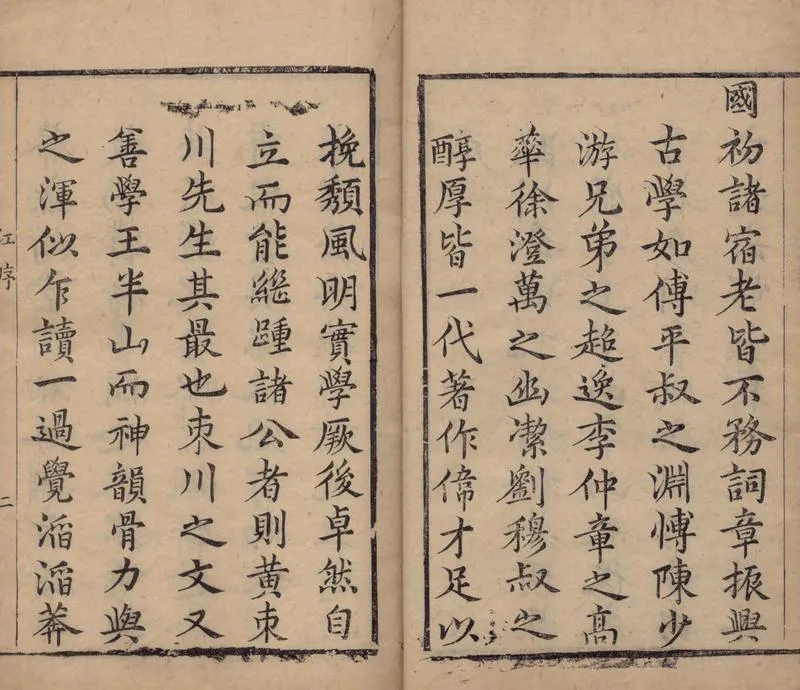 國初諸宿老皆不務詞章振興
古學如傅平叔之淵愽陳少
游兄弟之超逸李仲章之高
華徐澄萬之幽潔劉穆叔之
醇厚皆一代著作偉才足以
挽頽風明實學厥後卓然自
立而能繼踵諸公者則黃朿
川先生其最也朿川之文又
善學王半山而神韻骨力與
之渾似乍讀一過覺滔滔莽
江序
二